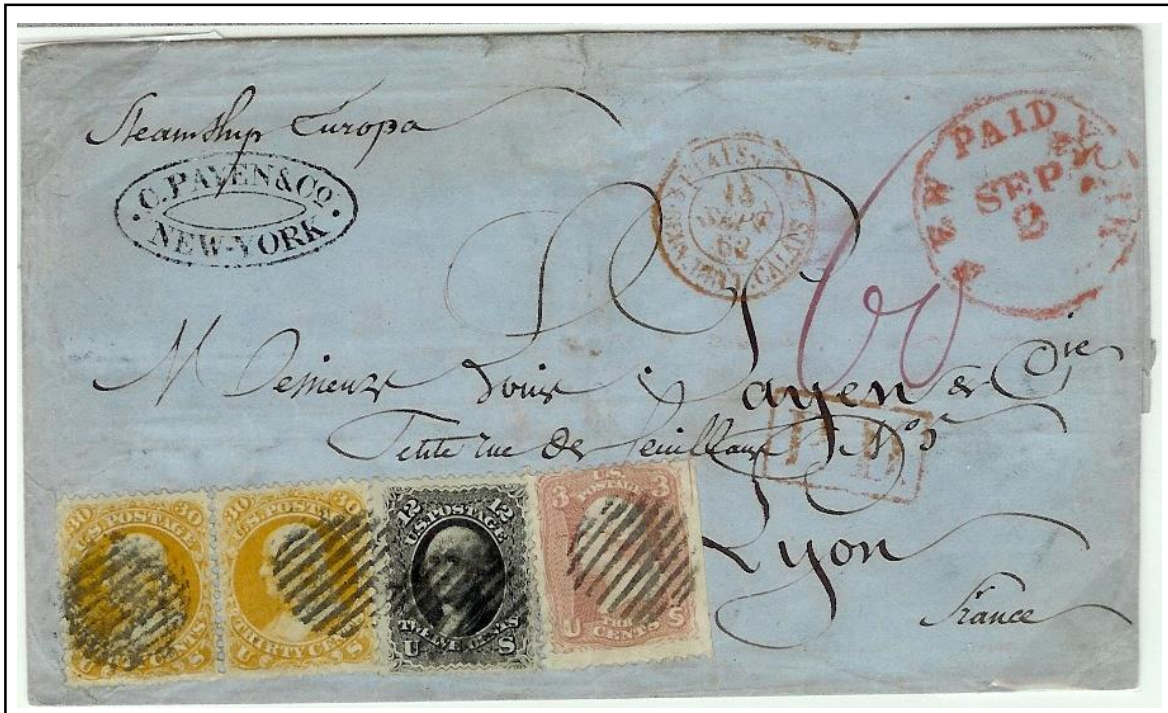 Steamship Europa
C. PAYEN & CO.
NEW-YORK
13
SEPT
62
CALAIS
NEW PAID YORK
SEP
60
Messieurs Louis Payen & Cie
Petite rue des Feuillans No 5
P.D.
Lyon
France
30 30
U.S. POSTAGE
THIRTY CENTS
U S
30 30
U.S. POSTAGE
THIRTY CENTS
U S
12 12
U.S. POSTAGE
TWELVE CENTS
U S
3 3
U.S.
POSTAGE
THREE
CENTS
U S